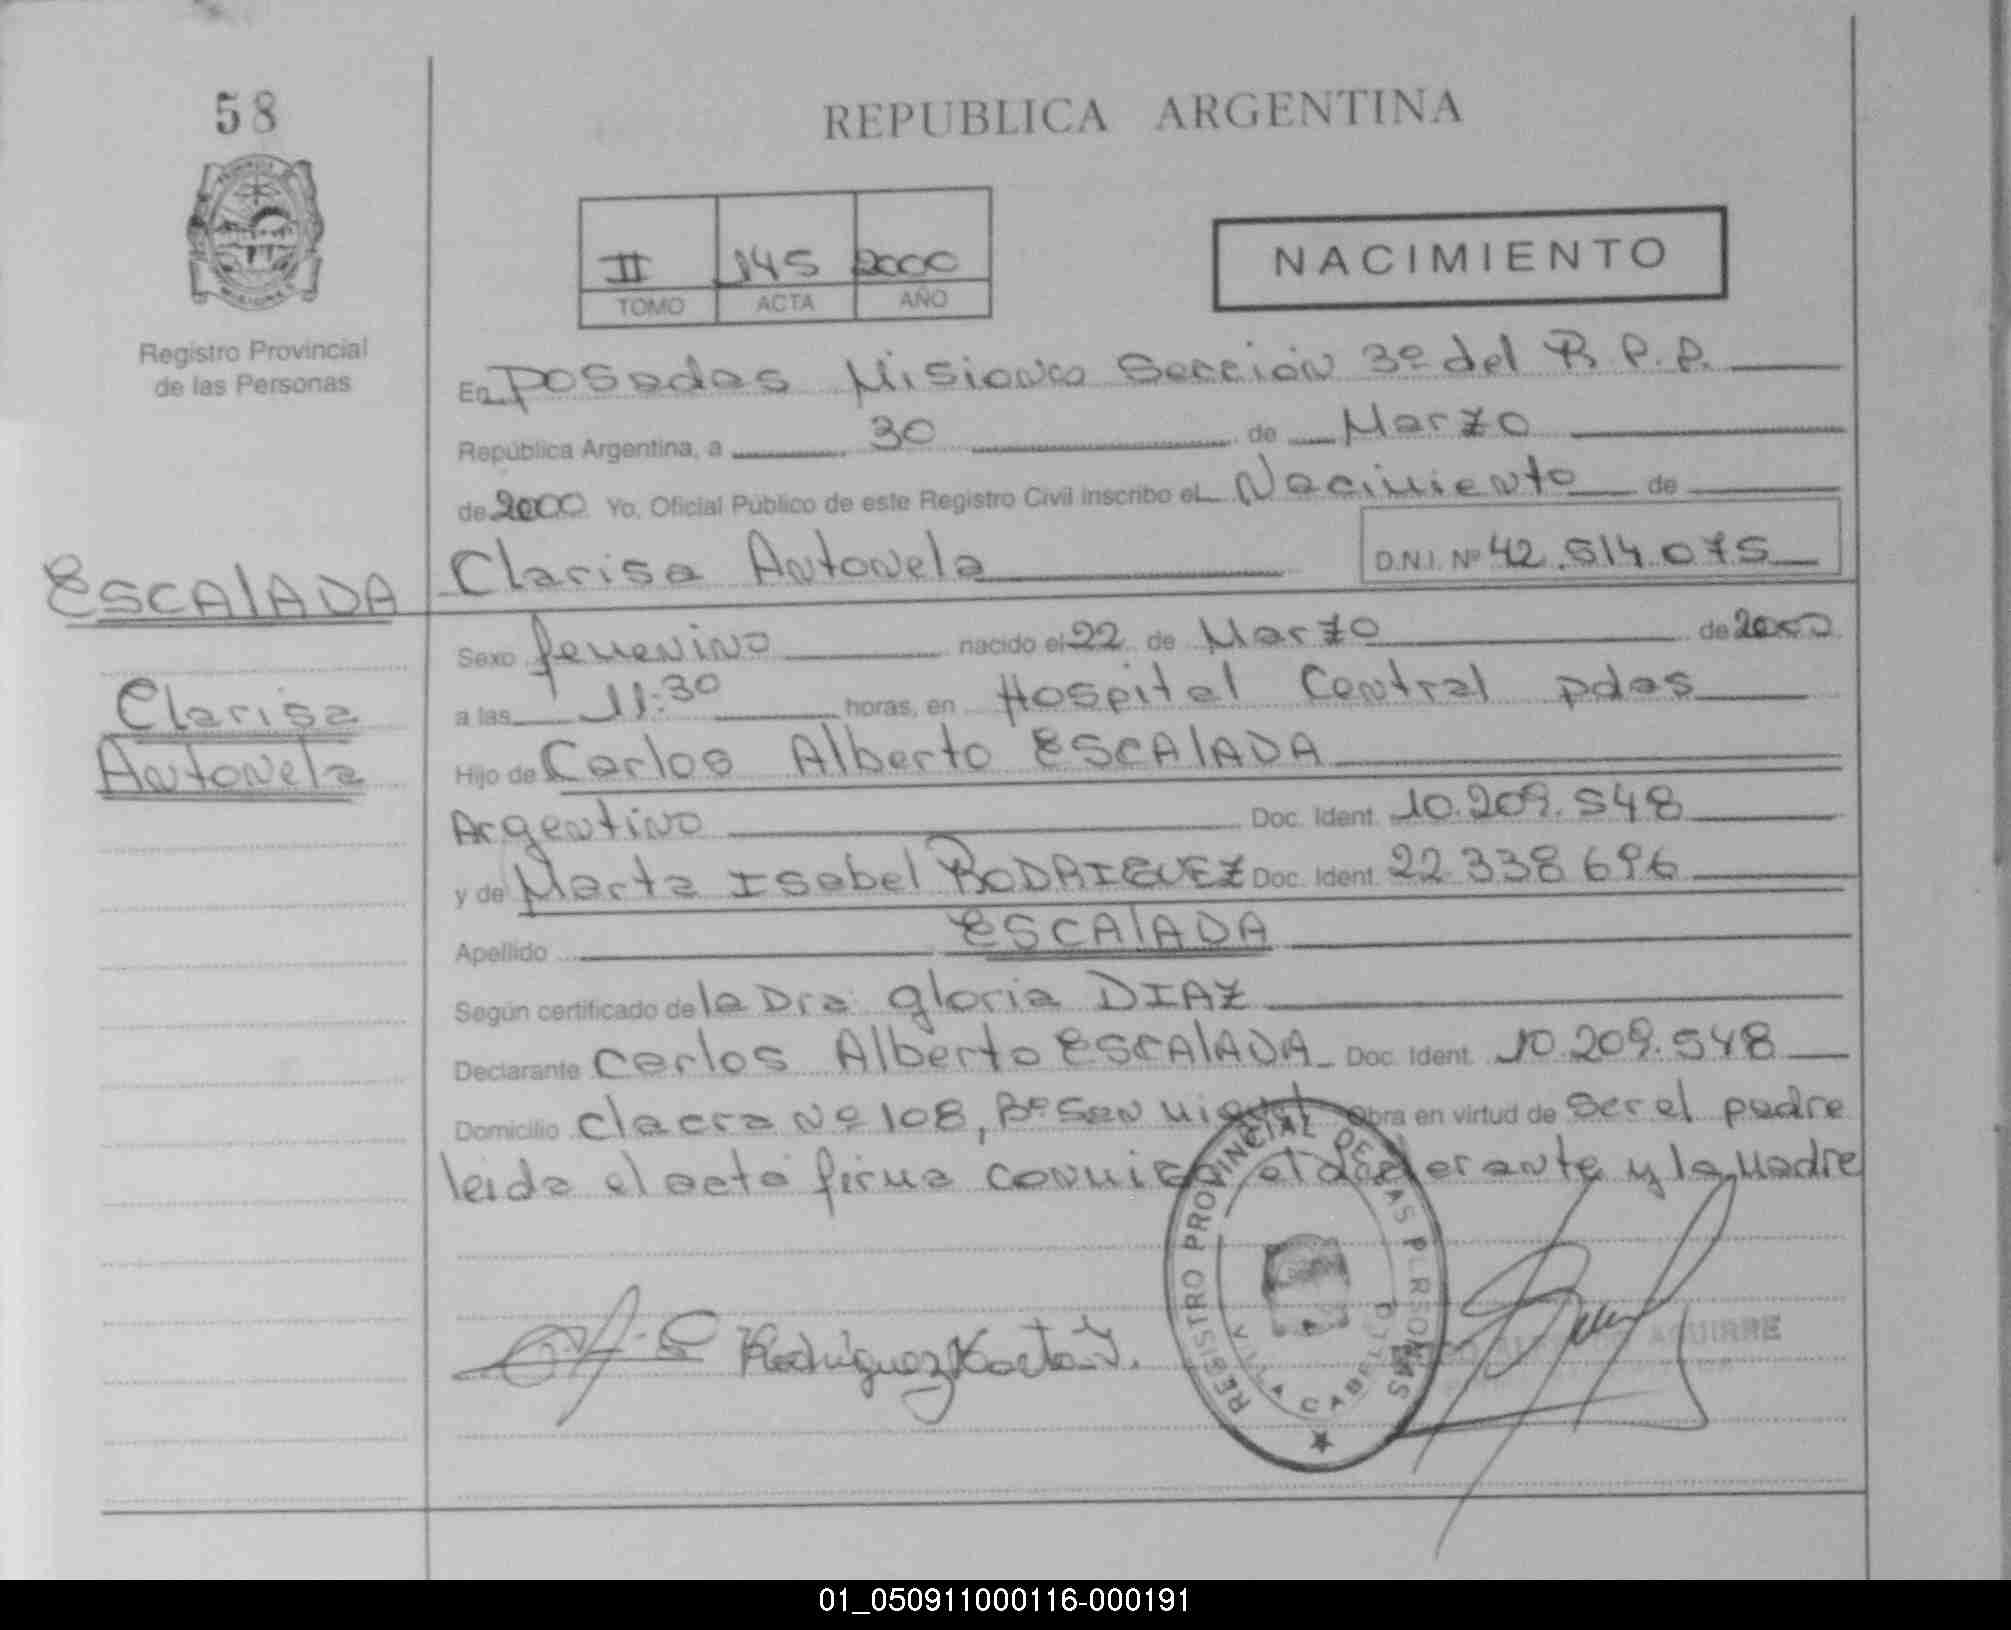 58
REPUBLICA ARGENTINA
II 145 2000
TOMO ACTA AÑO
NACIMIENTO
Registro Provincial
de las Personas
En Posadas Misiones Sección 3º del R.P.P.
República Argentina, a 30 de Marzo
de 2000 Yo, Oficial Público de este Registro Civil inscribo el Nacimiento de
Clarisa Antonela D.N.I. Nº 42.514.075
ESCAlADA
Clarisa
Antonela
Sexo femenino nacido el 22 de Marzo de 2000
a las 11:30 horas, en Hospital Central pdas
Hijo de Carlos Alberto ESCAlADA
Argentino Doc. Ident. 10.209.548
y de Marta Isabel RODRIGUEZ Doc. Ident. 22.338.696
Apellido ESCAlADA
Según certificado de la Dra Gloria DIAZ
Declarante Carlos Alberto ESCAlADA Doc. Ident. 10.209.548
Domicilio Chacra Nº 108, Bº San Miguel Obra en virtud de ser el padre
leida el acta firma conmigo el declarante y la Madre
Rodriguez Marta I.
REGISTRO PROVINCIAL DE LAS PERSONAS
VILLA CABELLO
AGUIRRE
01_050911000116-000191